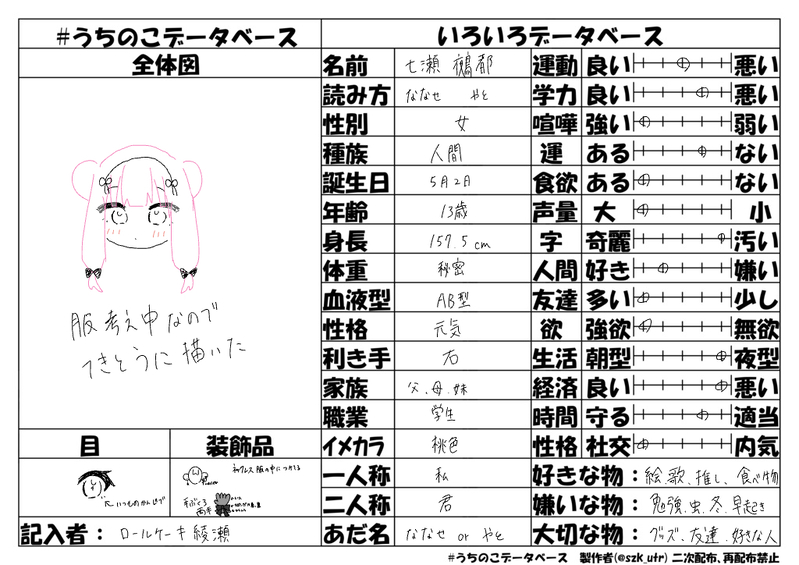 #うちのこデータベース
いろいろデータベース
全体図
服考え中なので
てきとうに描いた
目
装飾品
いつものかんじで
ネックレス 服の中につける
手ぶくろ
両手
記入者： ロールケーキ綾瀬
名前 七瀬 鵺都
読み方 ななせ やと
性別 女
種族 人間
誕生日 5月2日
年齢 13歳
身長 157.5cm
体重 秘密
血液型 AB型
性格 元気
利き手 右
家族 父、母、妹
職業 学生
イメカラ 桃色
一人称 私
二人称 君
あだ名 ななせ or やと
運動 良い 悪い
学力 良い 悪い
喧嘩 強い 弱い
運 ある ない
食欲 ある ない
声量 大 小
字 奇麗 汚い
人間 好き 嫌い
友達 多い 少し
欲 強欲 無欲
生活 朝型 夜型
経済 良い 悪い
時間 守る 適当
性格 社交 内気
好きな物：絵、歌、推し、食べ物
嫌いな物：勉強、虫、冬、早起き
大切な物：グッズ、友達、好きな人
#うちのこデータベース 製作者(@szk_utr) 二次配布、再配布禁止